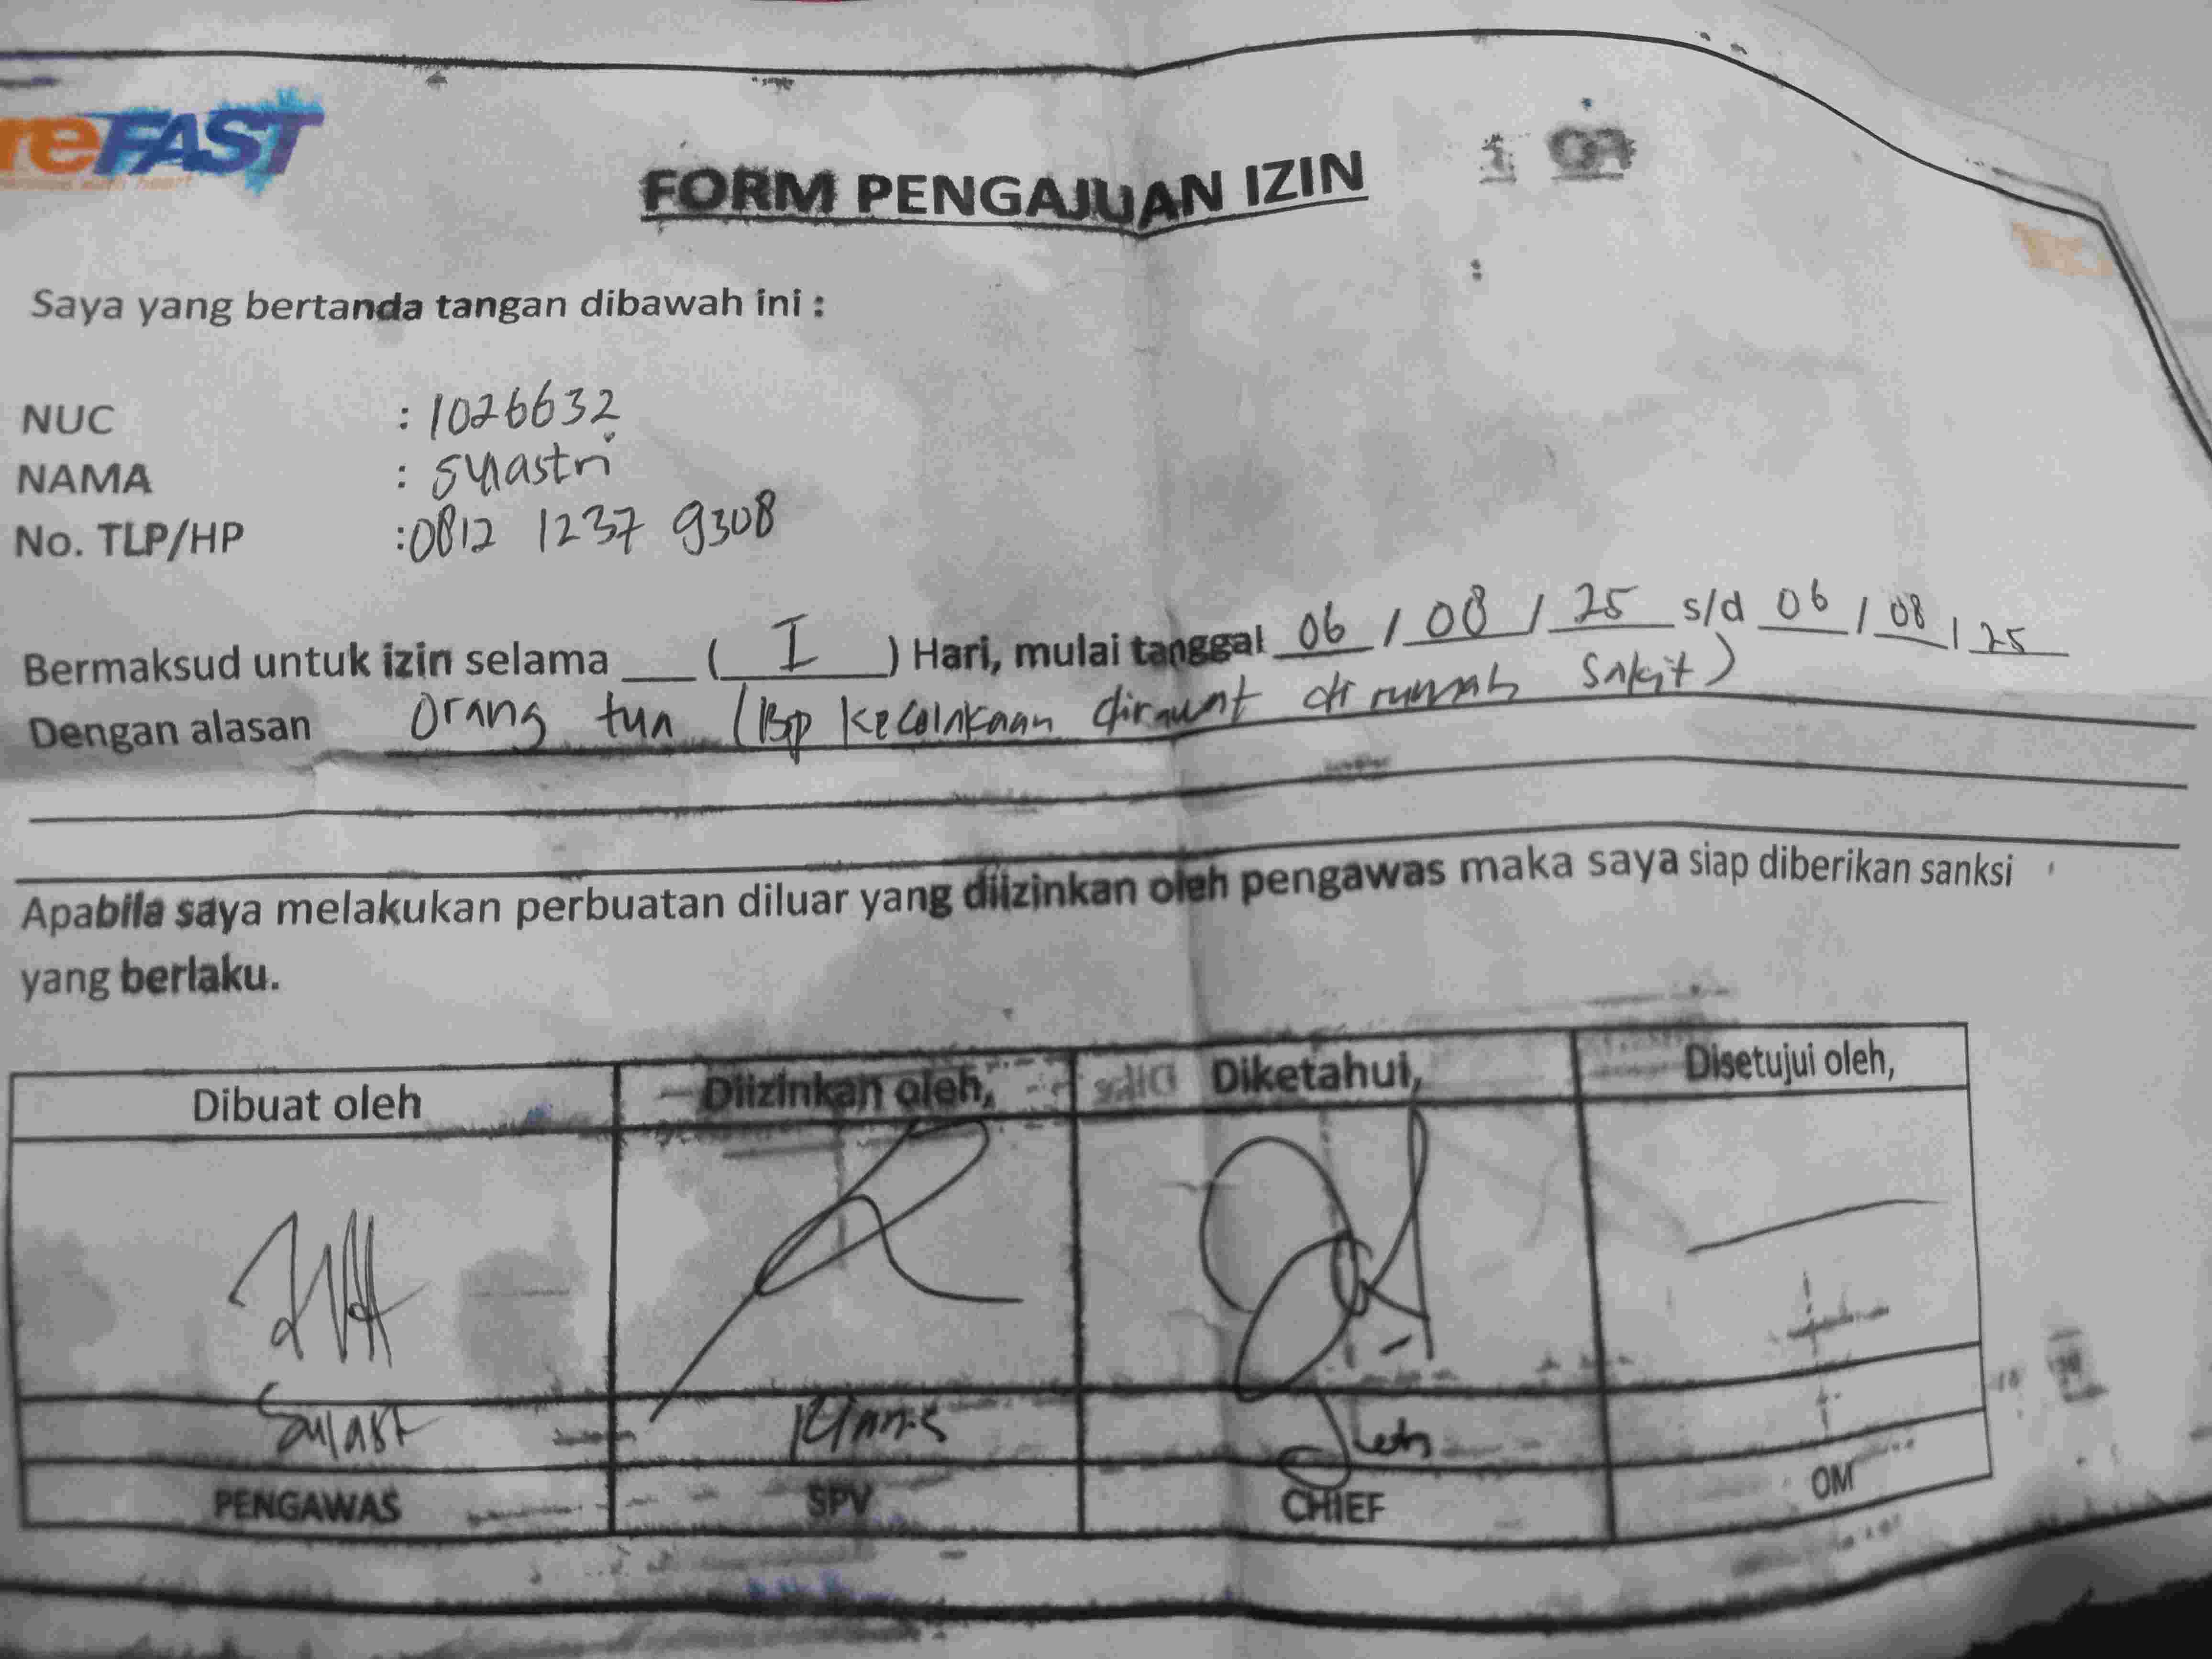 reFAST
FORM PENGAJUAN IZIN
Saya yang bertanda tangan dibawah ini :
NUC : 1026632
NAMA :
No. TLP/HP :0812 1237 9308
Bermaksud untuk izin selama ___ ( I ) Hari, mulai tanggal 06 / 08 / 25 s/d 06 / 08 / 25
Dengan alasan orang tua (Bp kecelakaan dirawat di rumah sakit)
Apabila saya melakukan perbuatan diluar yang diizinkan oleh pengawas maka saya siap diberikan sanksi
yang berlaku.
Dibuat oleh Diizinkan oleh, Diketahui, Disetujui oleh,
PENGAWAS SPV CHIEF OM